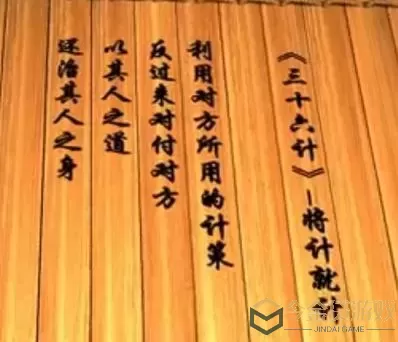 《三十六计》–将计就计
利用对方所用的计策
反过来对付对方
以其人之道
还治其人之身
JINDAI GAME